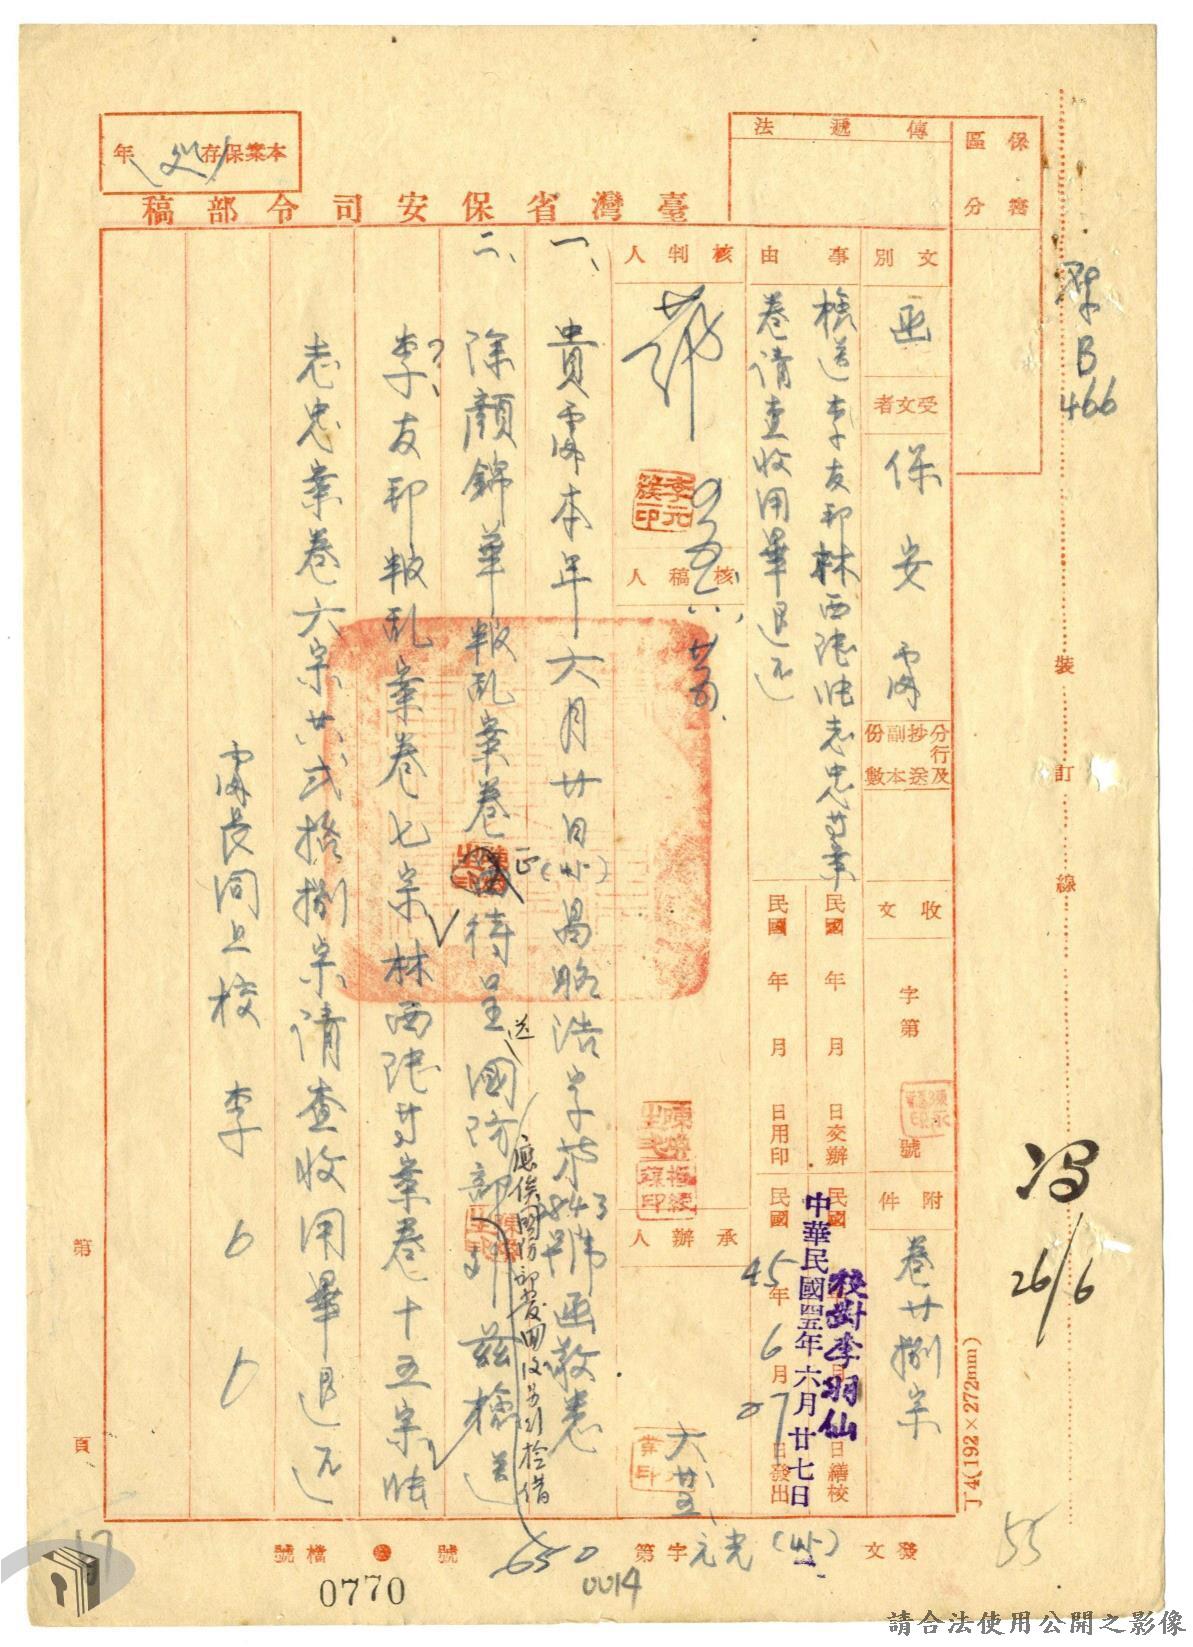 保密
區分
傳遞法
本案保存年
臺灣省保安司令部稿
文別
函
受文者
保安處
分行及抄送副本份數
收文
字第
號
附件
卷廿捌宗
事由
檢送李友邦林西陸張志忠等案
卷請查收用畢退還
民國 年 月 日交辦
民國 年 月 日用印
民國 年 月 日繕校
民國45年6月27日發出
中華民國四五年六月廿七日
校對李羽仙
核判人
李元簇印
核稿人
承辦人
一、貴處本年六月廿日(45)晶昭浩字第2843號函敬悉
二、除顏錦華叛亂案卷正待呈送國防部
應俟國防部發回後另行檢借
茲檢送
李友邦叛亂案卷七宗林西陸等案卷十五宗張
志忠案卷六宗共弍拾捌宗請查收用畢退還
處長同上校 李○○
發文
(45)
字第
650
號
檔號
0770
0014
第 頁
裝
訂
線
B
466
26/6
55
17
丁4(192×272mm)
請合法使用公開之影像